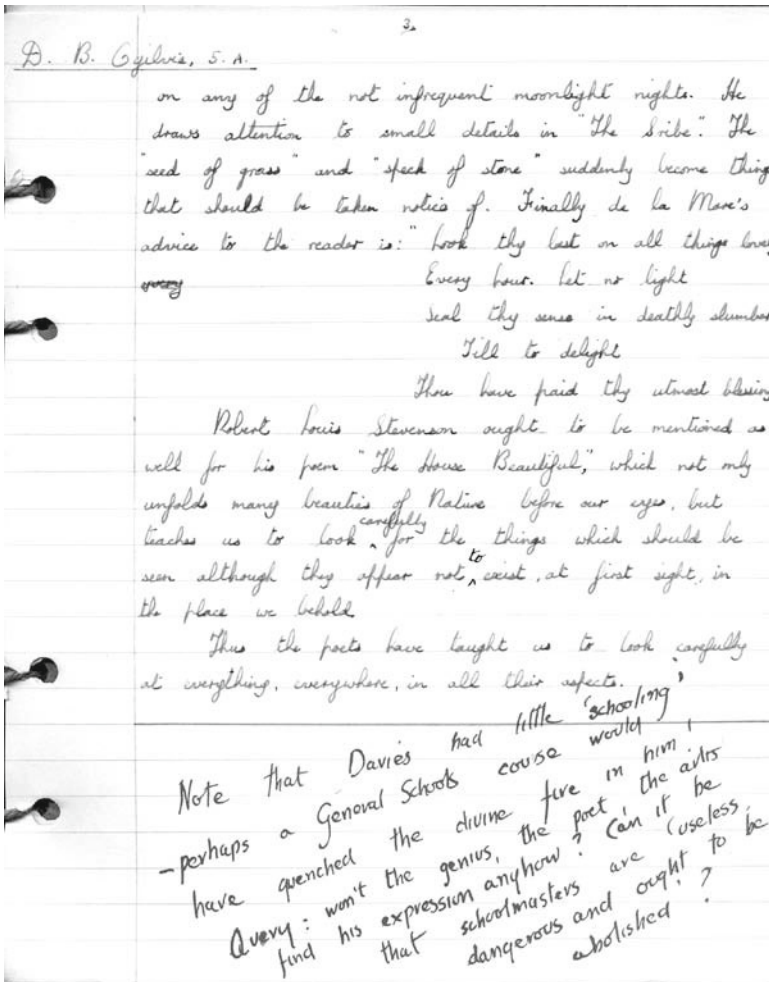 3.
D. B. Ogilvie, 5. A.
on any of the not infrequent moonlight nights. He
draws attention to small details in "The Sribe". The
"seed of grass" and "speck of stone" suddenly become thing
that should be taken notice of. Finally de la Mare's
advice to the reader is: "Look thy last on all things lovely
every
Every hour. Let no light
Seal thy sense in deathly slumber
Till to delight
Thou have paid thy utmost blessing
Robert Louis Stevenson ought to be mentioned as
well for his poem "The House Beautiful," which not only
unfolds many beauties of Nature before our eyes, but
teaches us to look carefully for the things which should be
seen although they appear not to exist, at first sight, in
the place we behold
Thus the poets have taught us to look carefully
at everything, everywhere, in all their aspects.
Note that Davies had little 'schooling'
- perhaps a General Schools course would
have quenched the divine fire in him!
Query: won't the genius, the poet, the artis
find his expression anyhow? Can it be
that schoolmasters are (useless,
dangerous and ought to be
abolished?